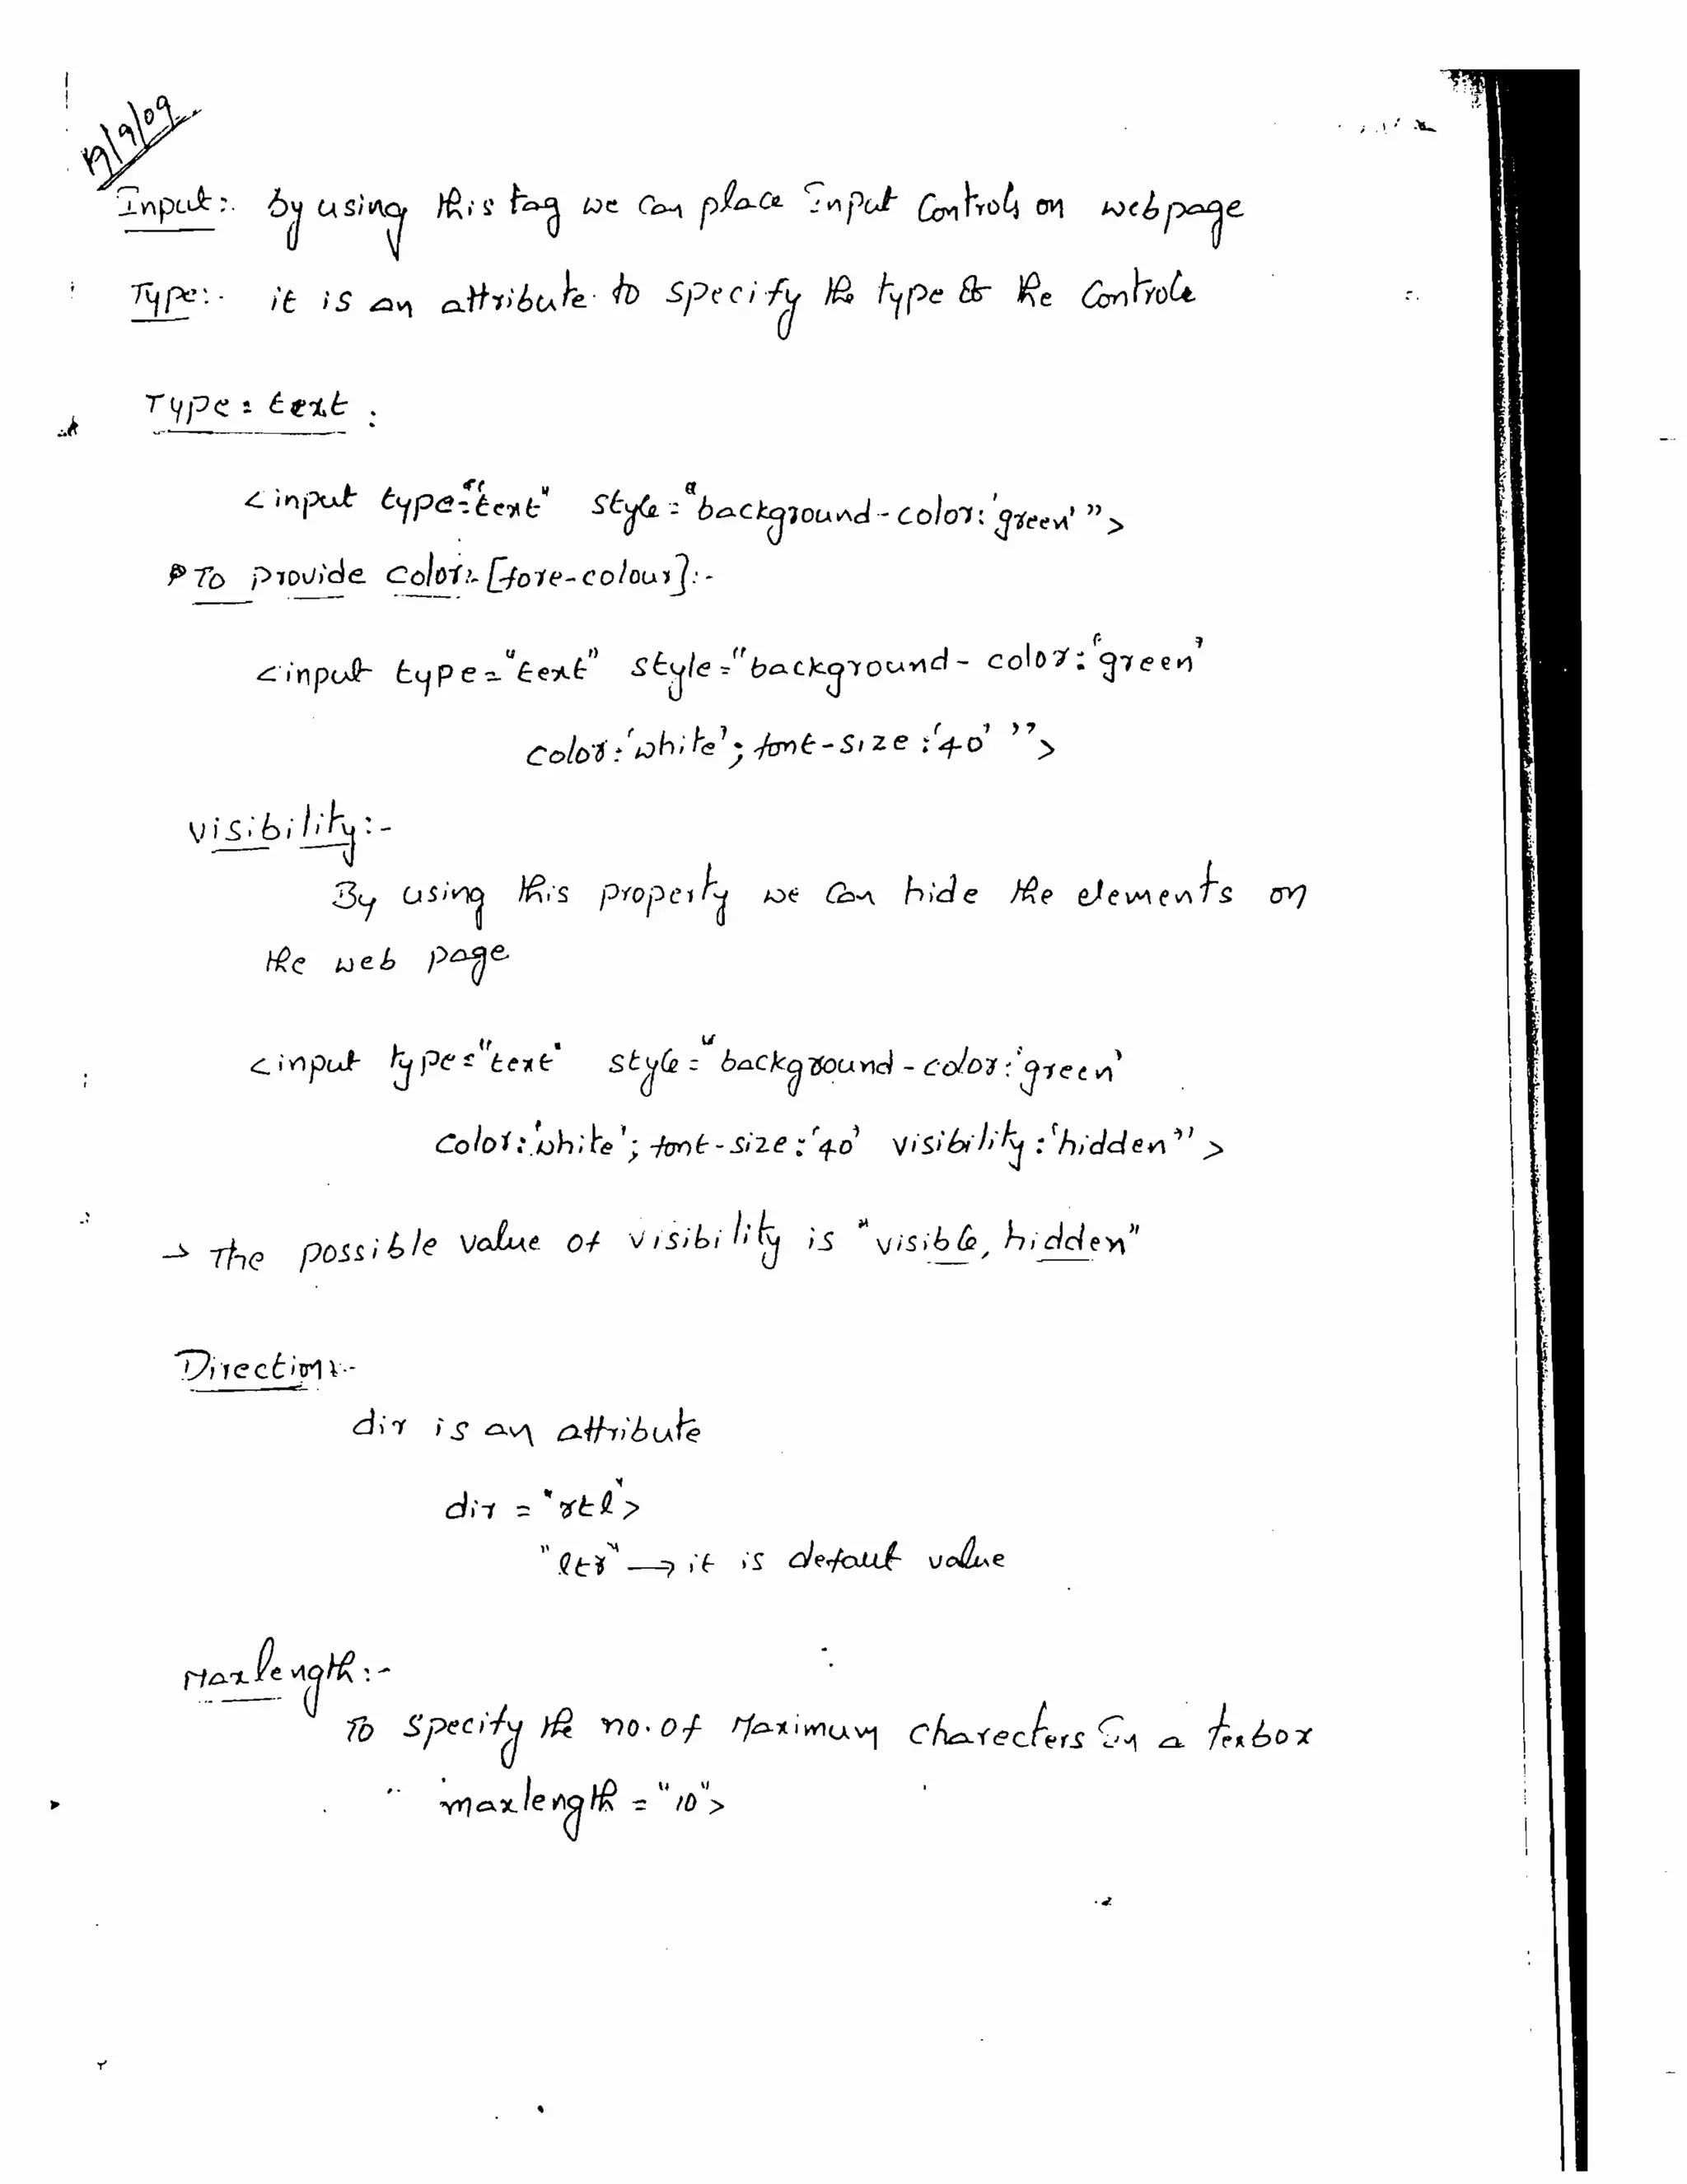 19/9/09
Input:- by using this tag we can place Input Controls on webpage
Type:- it is an attribute to specify the type of the Controle
Type = text :
<input type="text" style="background-color:'green' ">
To provide color:- [fore-colour]:-
<input type="text" style="background-color:'green'
color:'white'; font-size:'40' ">
visibility:-
By using this property we can hide the elements on
the web page
<input type="text" style="background-color:'green'
color:'white'; font-size:'40' visibility:'hidden'">
→ The possible value of visibility is "visible, hidden"
Direction:-
dir is an attribute
dir = "rtl">
"ltr" → it is defaut value
Maxlength:-
To specify the no. of Maximum charecters in a texbox
maxlength = "10">